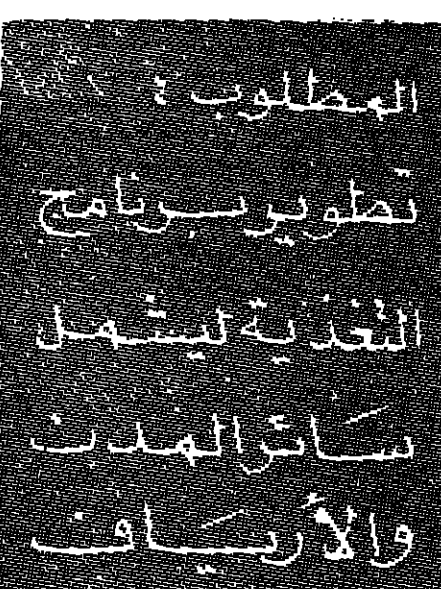 المطلوب :
تطوير برنامج
التغذية ليشمل
سائر المدن
والأرياف